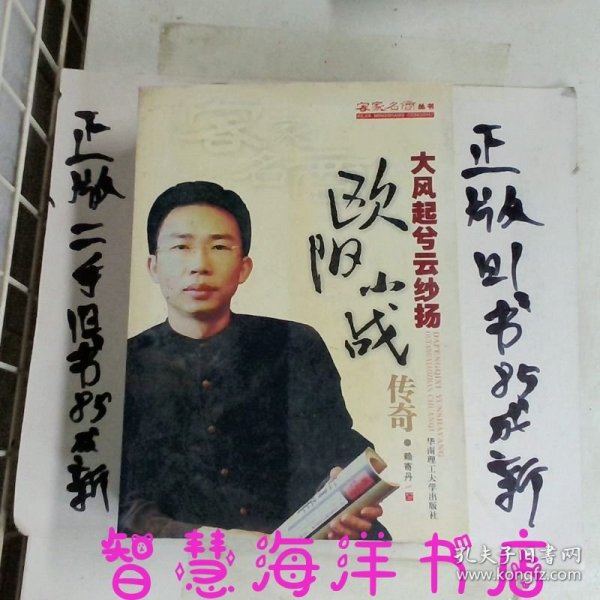 客家名商丛书
KEJIA MINGSHANG CONGSHU
大风起兮云纱扬
欧阳小战
传奇
赖寄丹
华南理工大学出版社
正版二手旧书85成新
正版旧书85成新
智慧海洋书店
孔夫子旧书网
www.kongfz.com